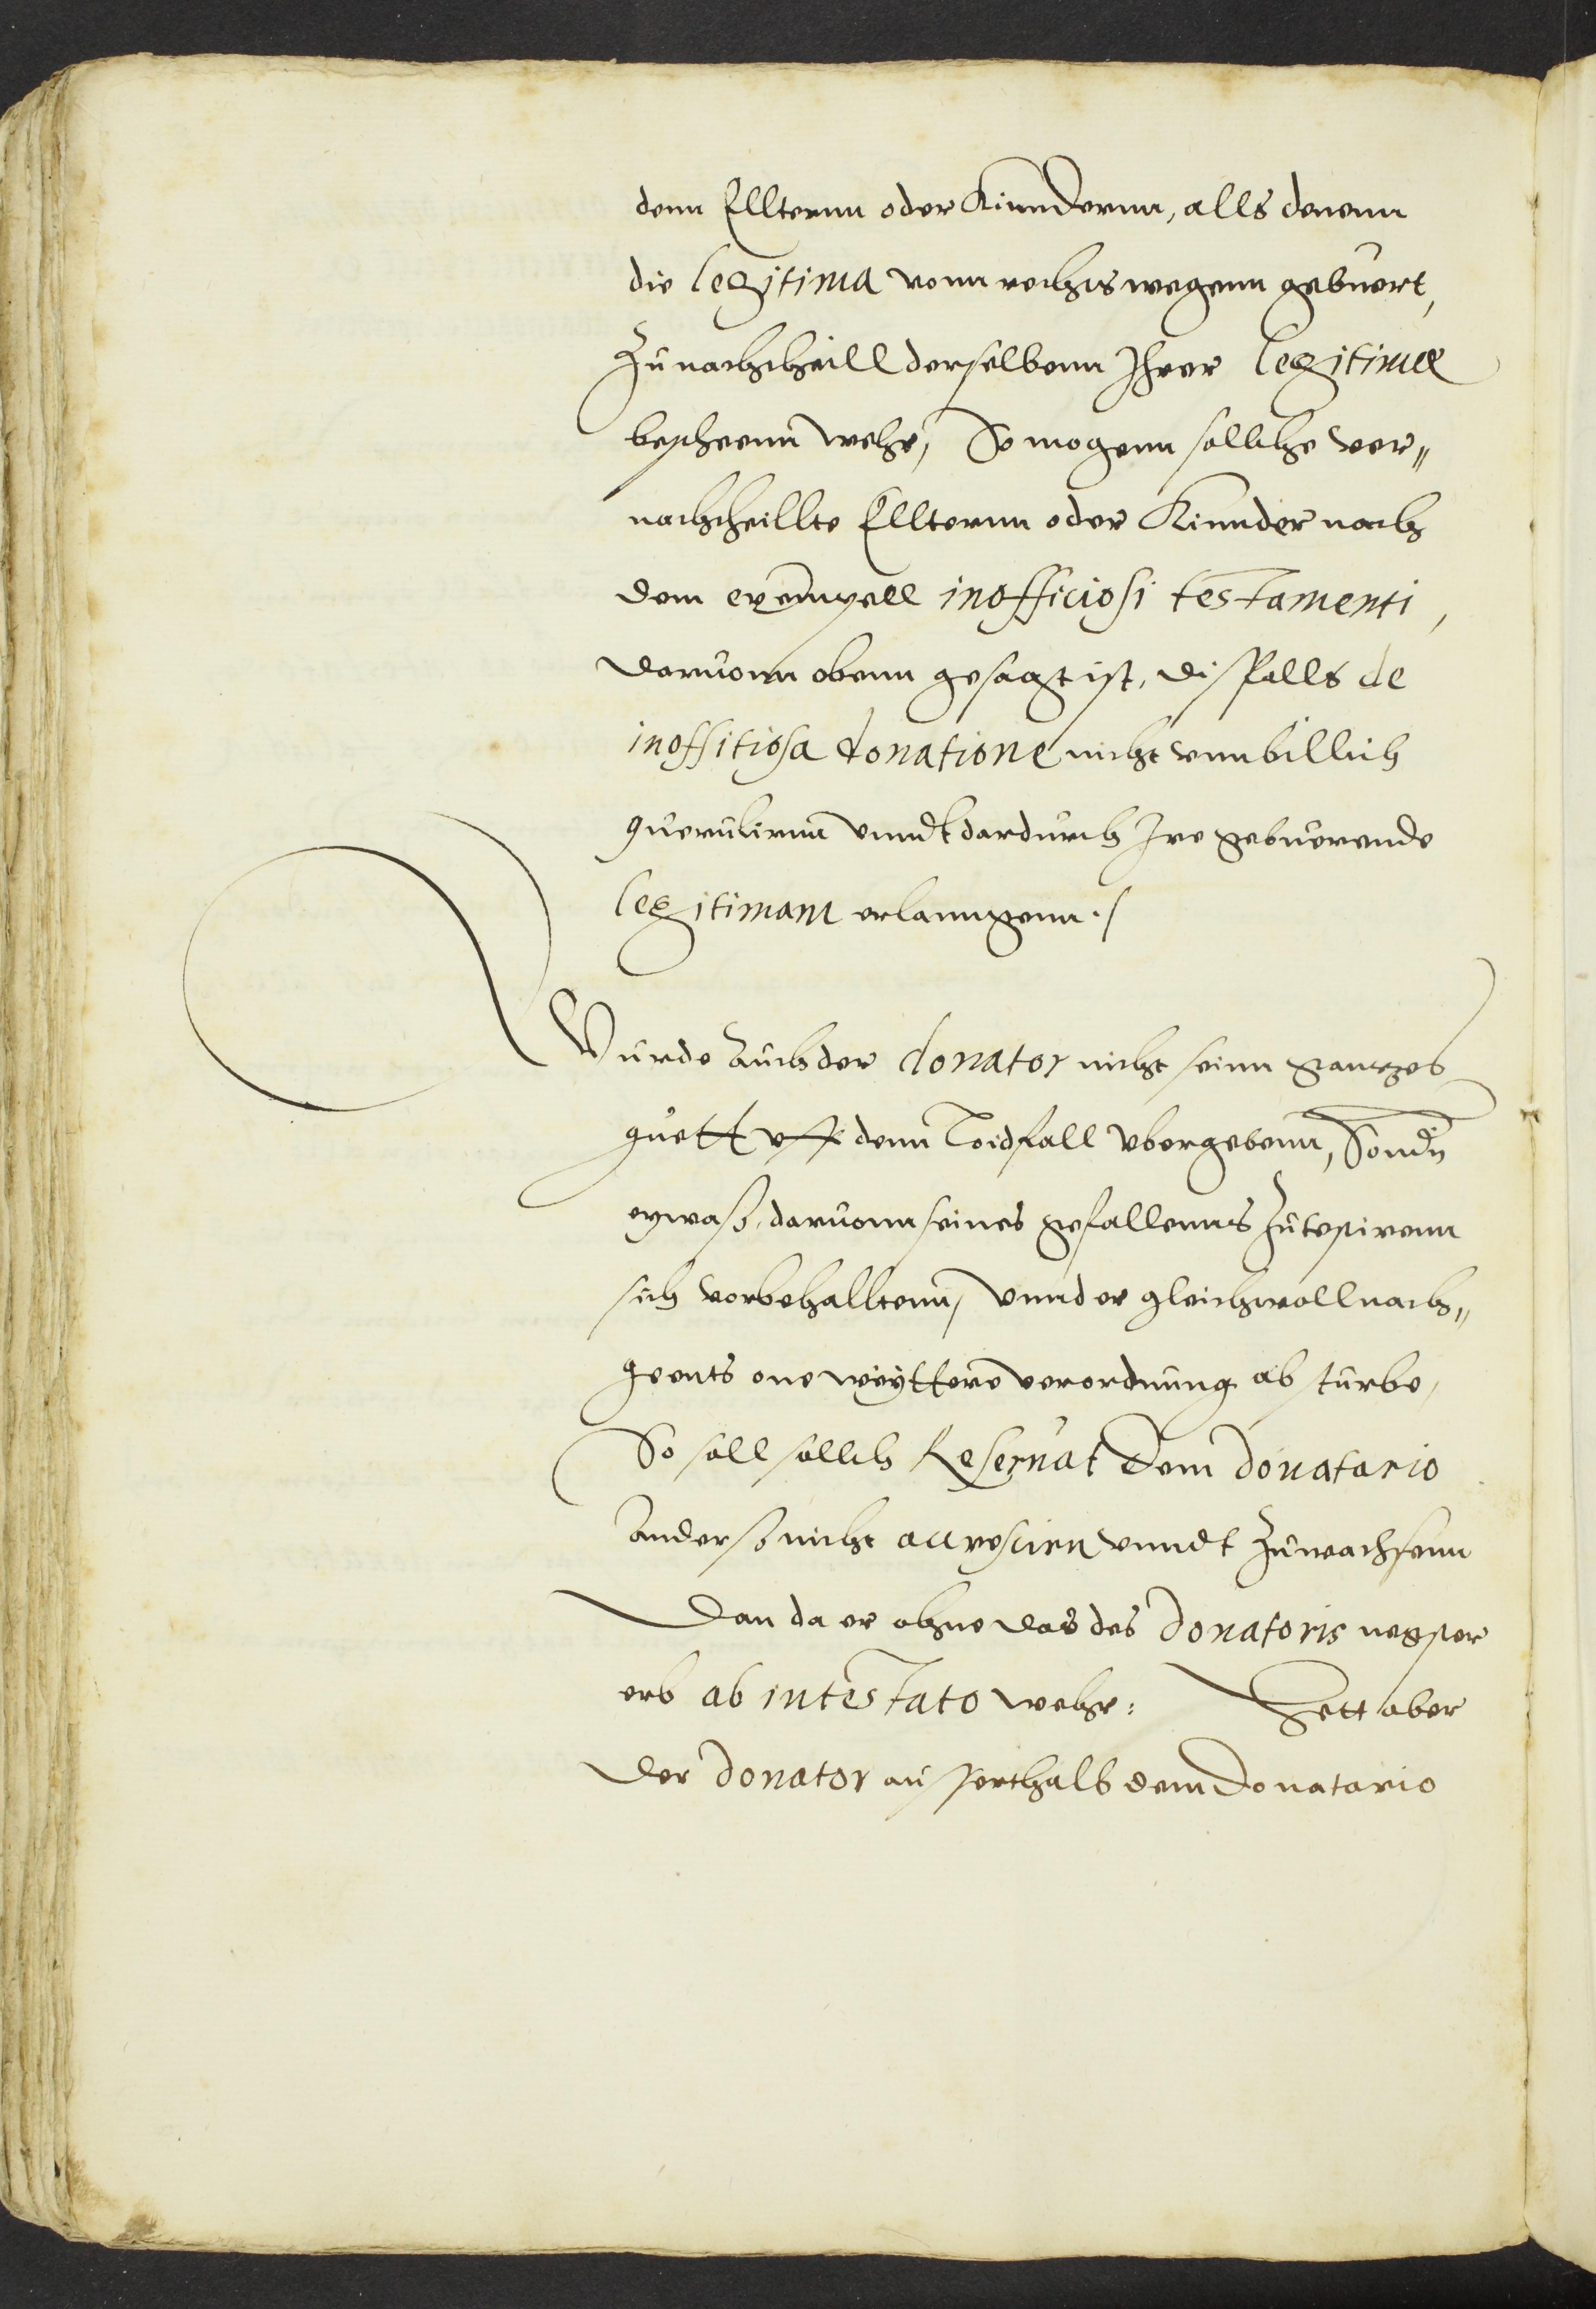 denn Ellternn oder Kinndernn, alls denenn
die legitima vonn rechts wegenn gebuert,
Zu nachtheill derselbenn Ihrer legitimæ
bescheenn wehr, So mogenn sollche ver„
nachtheillte Ellternn oder Kinnder nach
dem exempell inofficiosi testamenti,
daruonn obenn gesagt ist, dißfalls de
inoffitiosa donatione nicht vnnbillich
querulirnn vnndt dardurch Ire gebuerende
legitimam erlanngenn./
Wurde auch der donator nicht seinn gantzes
guett vff denn Todfall vbergebenn, Sondn
etwaß daruonn seines gefallenns Zu testirenn
sich vorbehalltenn, vnnd er gleichwoll nach„
geents one weyttere verordnung ab sturbe,
So soll sollch Reseruat dem donatario
anderß nicht accrescirn vnndt Zuwachsenn
dan da er ohne das des donatoris negster
erb ab intestato wehr: Hett aber
der donator ausserthalb dem donatario